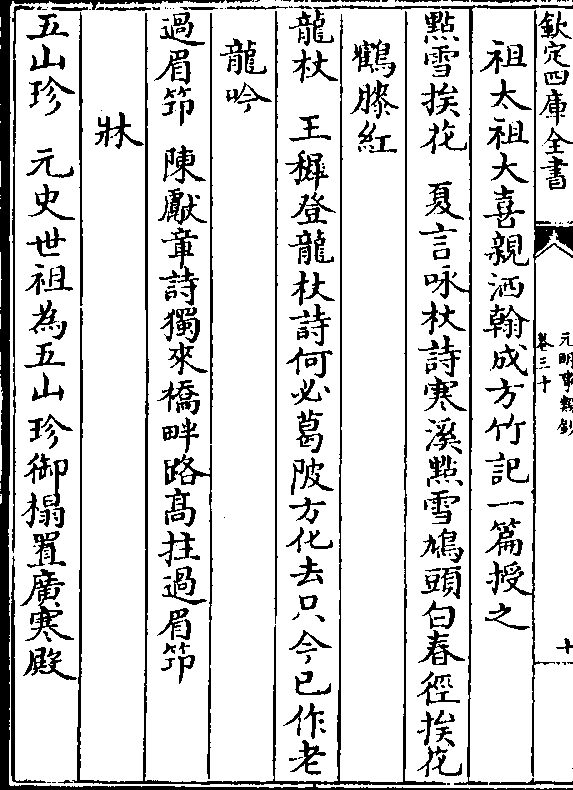 欽定四庫全書
元明事類鈔
卷三十
十
祖太祖大喜親洒翰成方竹記一篇授之
點雪挨花　夏言咏杖詩寒溪點雪鳩頭白春徑挨花
鶴膝紅
龍杖　王穉登龍杖詩何必葛陂方化去只今已作老
龍吟
過眉筇　陳獻章詩獨來橋畔路高拄過眉筇
牀
五山珍　元史世祖為五山珍御榻置廣寒殿